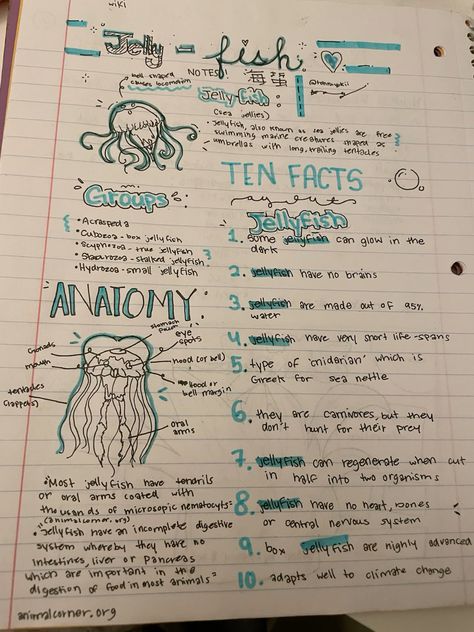 wiki
Jelly-fish
NOTES!
海蜇
bell shaped
causes locomotion
Jellyfish
(sea jellies)
• Jellyfish, also known as sea jellies are free
swimming marine creatures shaped as
umbrellas with long, trailing tentacles
Groups
• Acraspeda
• Cubozoa - box jellyfish
• Scyphozoa - true jellyfish
• Staurozoa - stalked jellyfish
• Hydrozoa - small jellyfish
ANATOMY
gonads
mouth
tentacles
(lappets)
stomach
eye
spots
hood (or bell)
hood or
bell margin
oral
arms
• Most jellyfish have tendrils
or oral arms coated with
thousands of microsopic nematocyts
(animalcorner.org)
• Jellyfish have an incomplete digestive
system whereby they have no
intestines, liver or Pancreas
which are important in the
digestion of food in most animals
animalcorner.org
TEN FACTS
about
Jellyfish
1. some jellyfish can glow in the
dark
2. jellyfish have no brains
3. jellyfish are made out of 95%
water
4. jellyfish have very short life-spans
5. type of 'cnidarian' which is
Greek for sea nettle
6. they are carnivores, but they
don't hunt for their prey
7. jellyfish can regenerate when cut
in half into two organisms
8. jellyfish have no heart, bones
or central nervous system
9. box jellyfish are highly advanced
10. adapts well to climate change